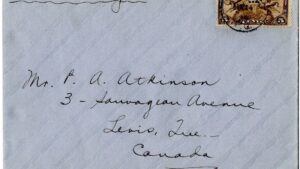 Mr. P. A. Atkinson
3 - Sauvageau Avenue
Levis, Que.—
Canada